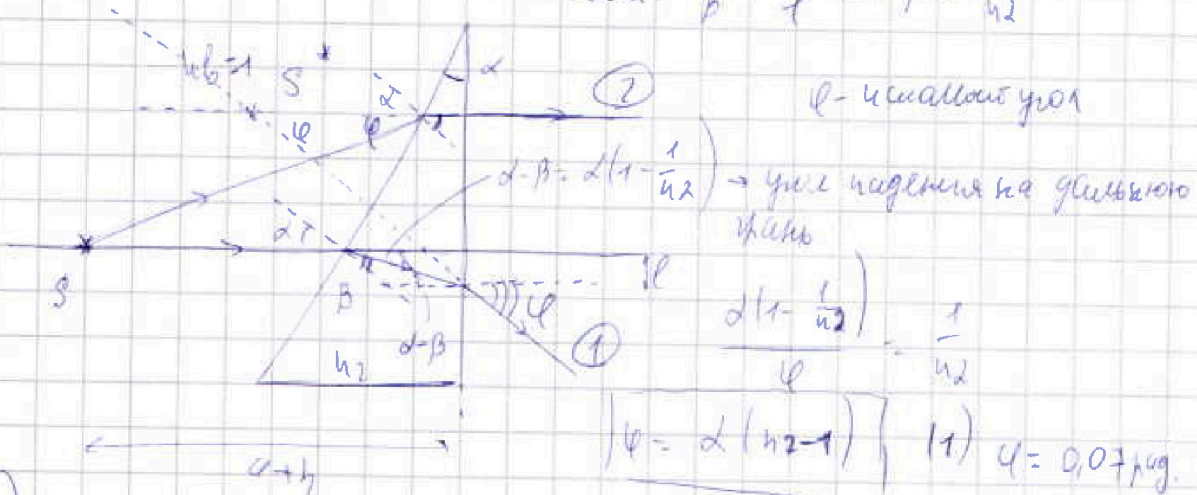 β 1 n2
nв=1
S
α
②
φ - искомый угол
φ
φ
α-β = α(1-1/n2) → угол падения на дальнюю
грань
S
β
φ
α-β
n2
①
α(1-1/n2)/φ = 1/n2
a+h
φ = α(n2-1) (1) φ = 0,07 рад.